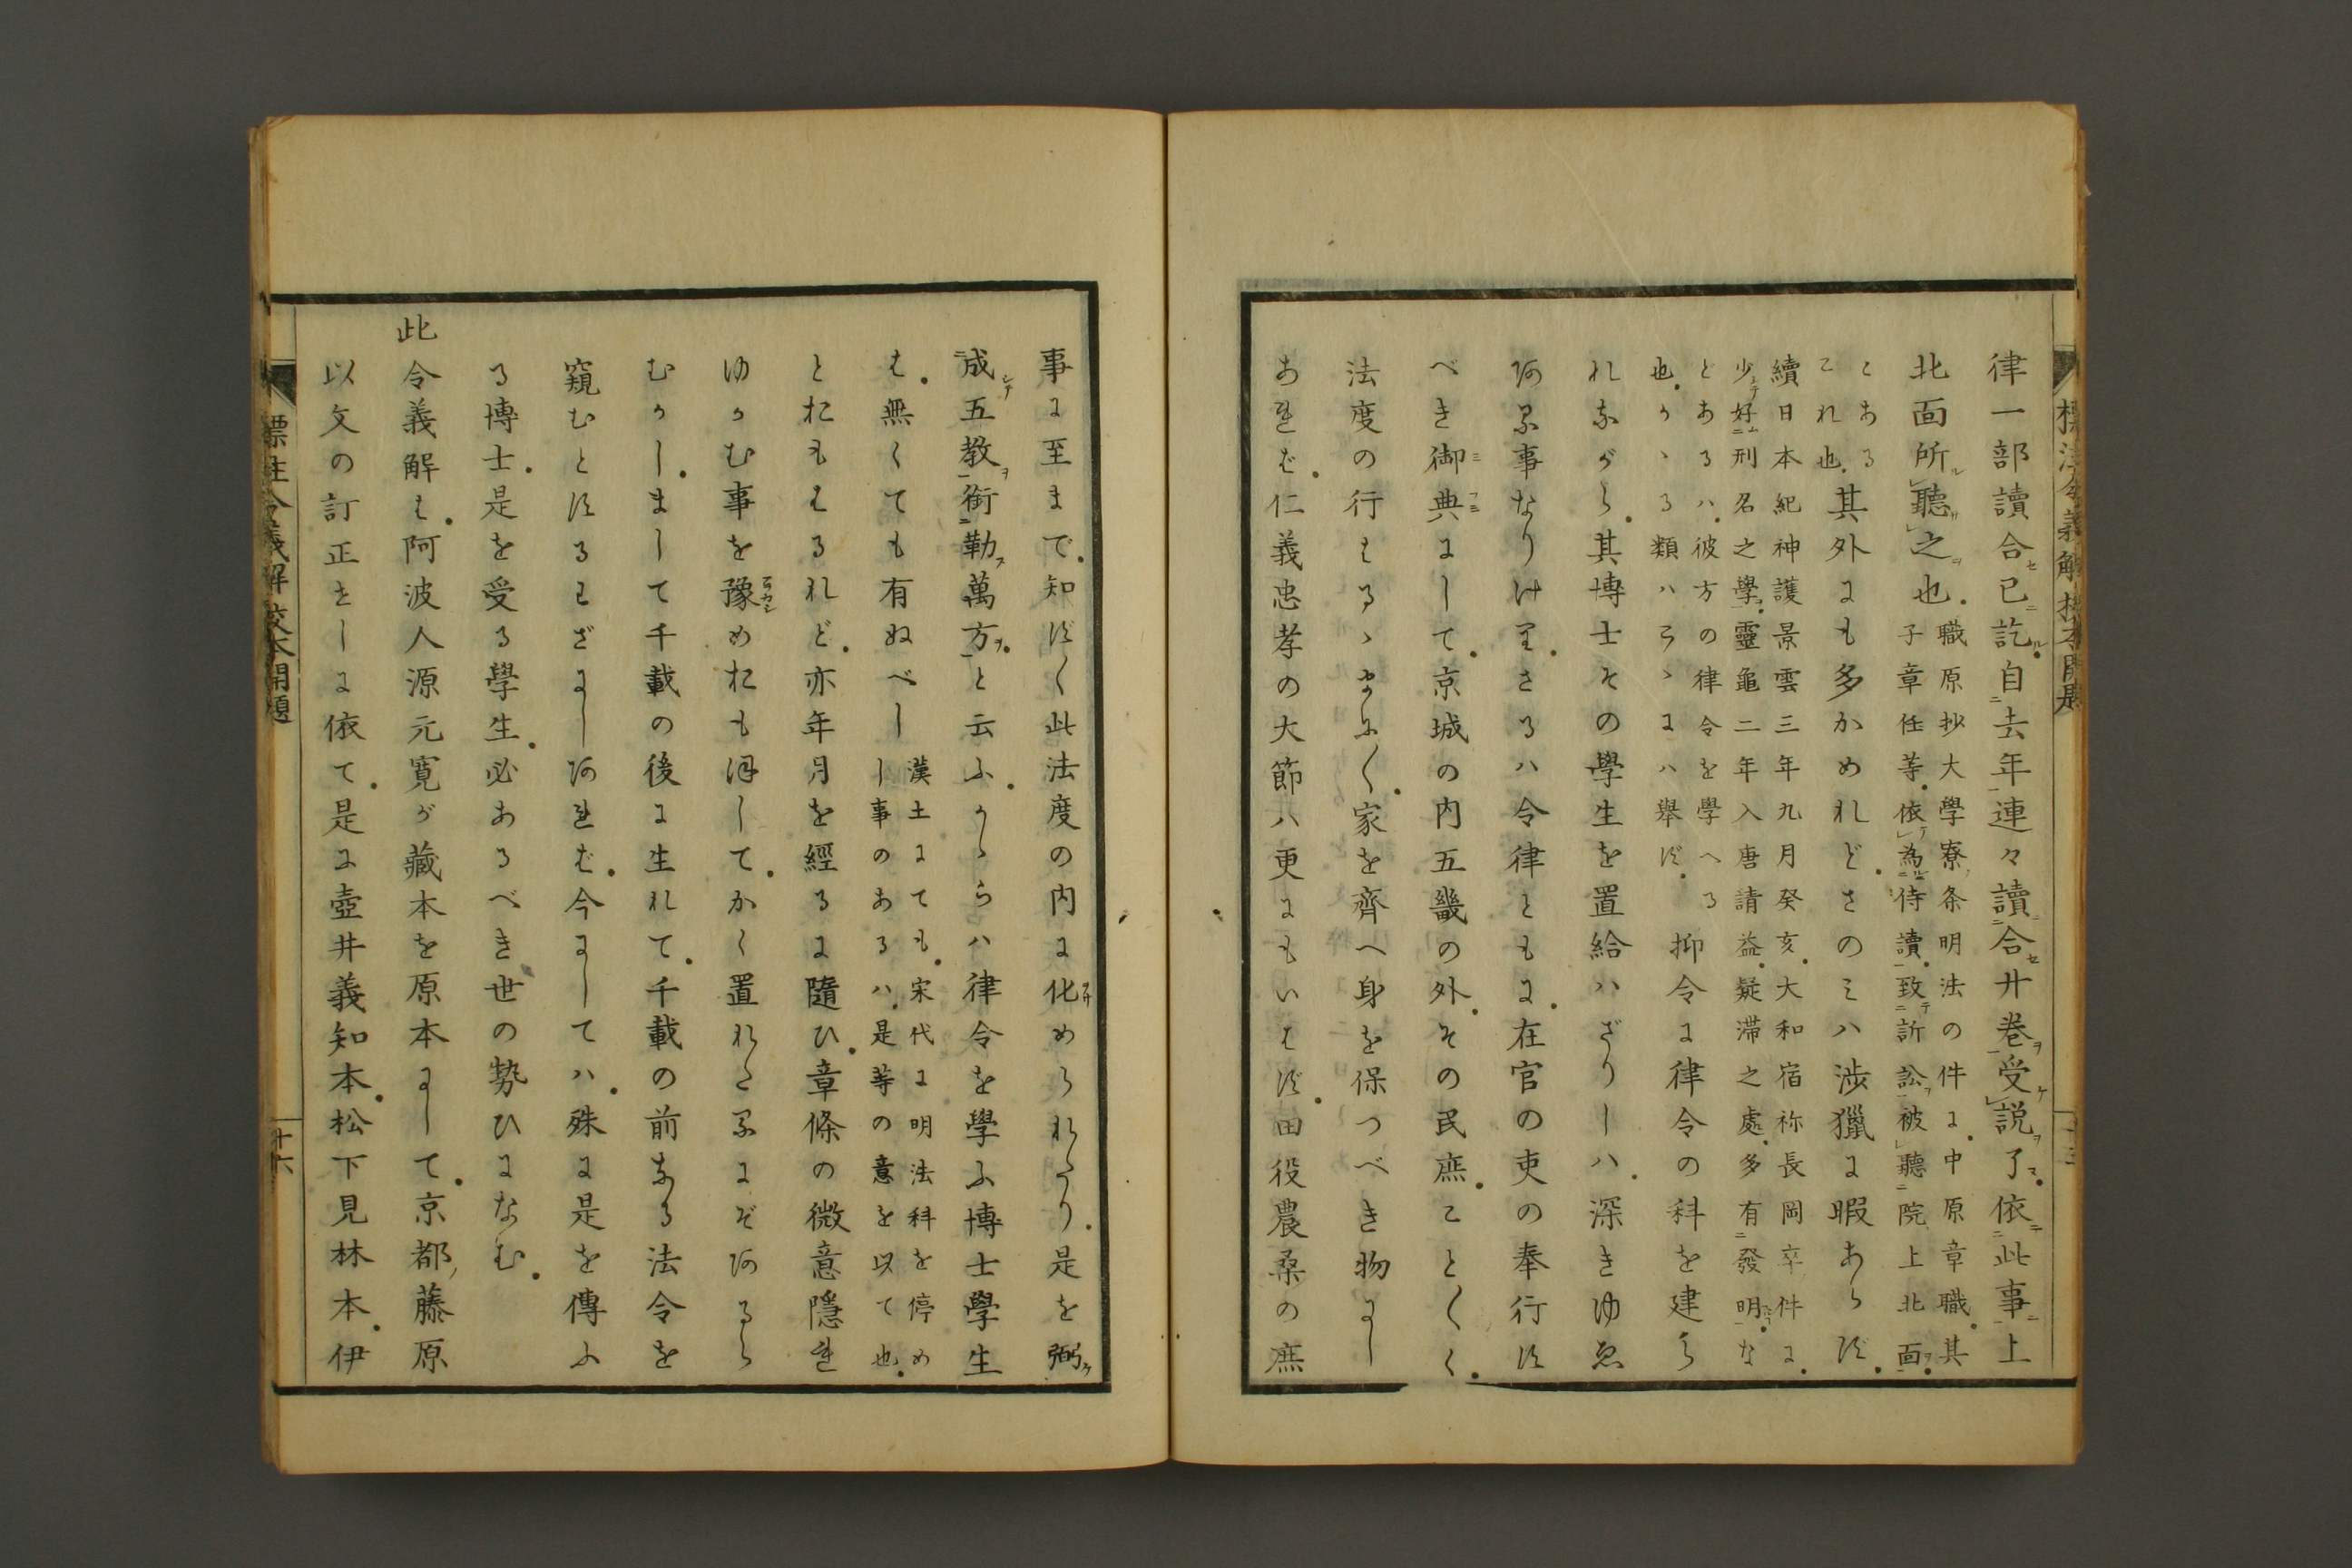 律一部讀合已訖。自去年連々讀合廿巻受説了。依此事上
北面所聽之也。職原抄大學寮条明法の件に。中原章職。其
子章任等。依為侍讀。致訴訟。被聽院上北面。
とある
これ也。其外にも多かめれどさのミハ渉獵に暇あらず。
續日本紀神護景雲三年九月癸亥。大和宿祢長岡卒件に。
少好刑名之學。靈龜二年入唐請益。疑滞之處。多有發明。な
とあるハ。彼方の律令を學へる
也。かゝる類ハこゝにハ舉ず。
抑令に律令の科を建ら
れながら。其博士その學生を置給ハざりしハ。深きゆゑ
ある事なりけり。さるハ令律ともに。在官の吏の奉行す
べき御典にして。京城の内五畿の外。その民庶。ことくく。
法度の行はるゝまにく。家を齊へ身を保つべき物にし
あれば。仁義忠孝の大節ハ更にもいはず。田役農桑の庶
事に至まで。知ずく此法度の内に化められたり。是を弼
成五教銜勒萬方と云ふ。かゝらハ律令を學ふ博士學生
は。無くても有ぬべし
漢土にても。宋代に明法科を停め
し事のあるハ。是等の意を以て也。
とおもはるれど。亦年月を經るに隨ひ。章條の微意隱れ
ゆかむ事を豫めおも保して。かく置れたるにぞあるら
むかし。まして千載の後に生れて。千載の前なる法令を
窺むとするわざにしあれば。今にしてハ。殊に是を傳ふ
る博士。是を受る學生。必あるべき世の勢ひになむ。
此令義解は。阿波人源元寛が藏本を原本にして。京都藤原
以文の訂正せしに依て。是に壺井義知本。松下見林本。伊
標注令義解校本開題
十六